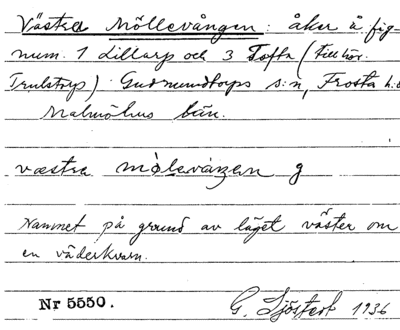 Västra Möllevången: åker å fig-
num. 1 Lillarp och 3 Tofta (tillhör.
Trulstorp) Gudmundtorps s:n, Frosta h:d
Malmöhus län.
væstra mølevåŋen g
Namnet på grund av läget väster om
en väderkvarn.
Nr 5550. G. Sjöstedt 1936